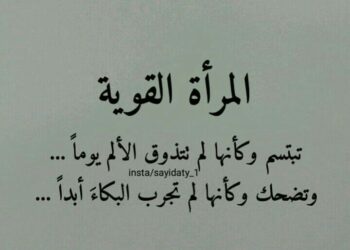 المرأة القوية
تبتسم وكأنها لم تتذوق الألم يوماً ...
insta/sayidaty_1
وتضحك وكأنها لم تجرب البكاءَ أبداً ...